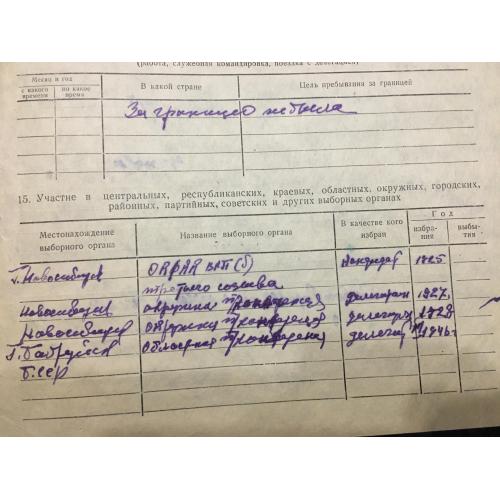 (работа, служебная командировка, поездка с делегацией)
Месяц и год
с какого времени
по какое время
В какой стране
Цель пребывания за границей
За границей не была
15. Участие в центральных, республиканских, краевых, областных, окружных, городских,
районных, партийных, советских и других выборных органах
Местонахождение выборного органа
Название выборного органа
В качестве кого избран
Год
избра-
ния
выбы-
тия
г. Новосибирск ВКП(б) кандидат 1925
третьего созыва
Новосибирск окружная делегат 1927
Новосибирск делегат 1928
г. Бобруйск областная делегат 1946
БССР